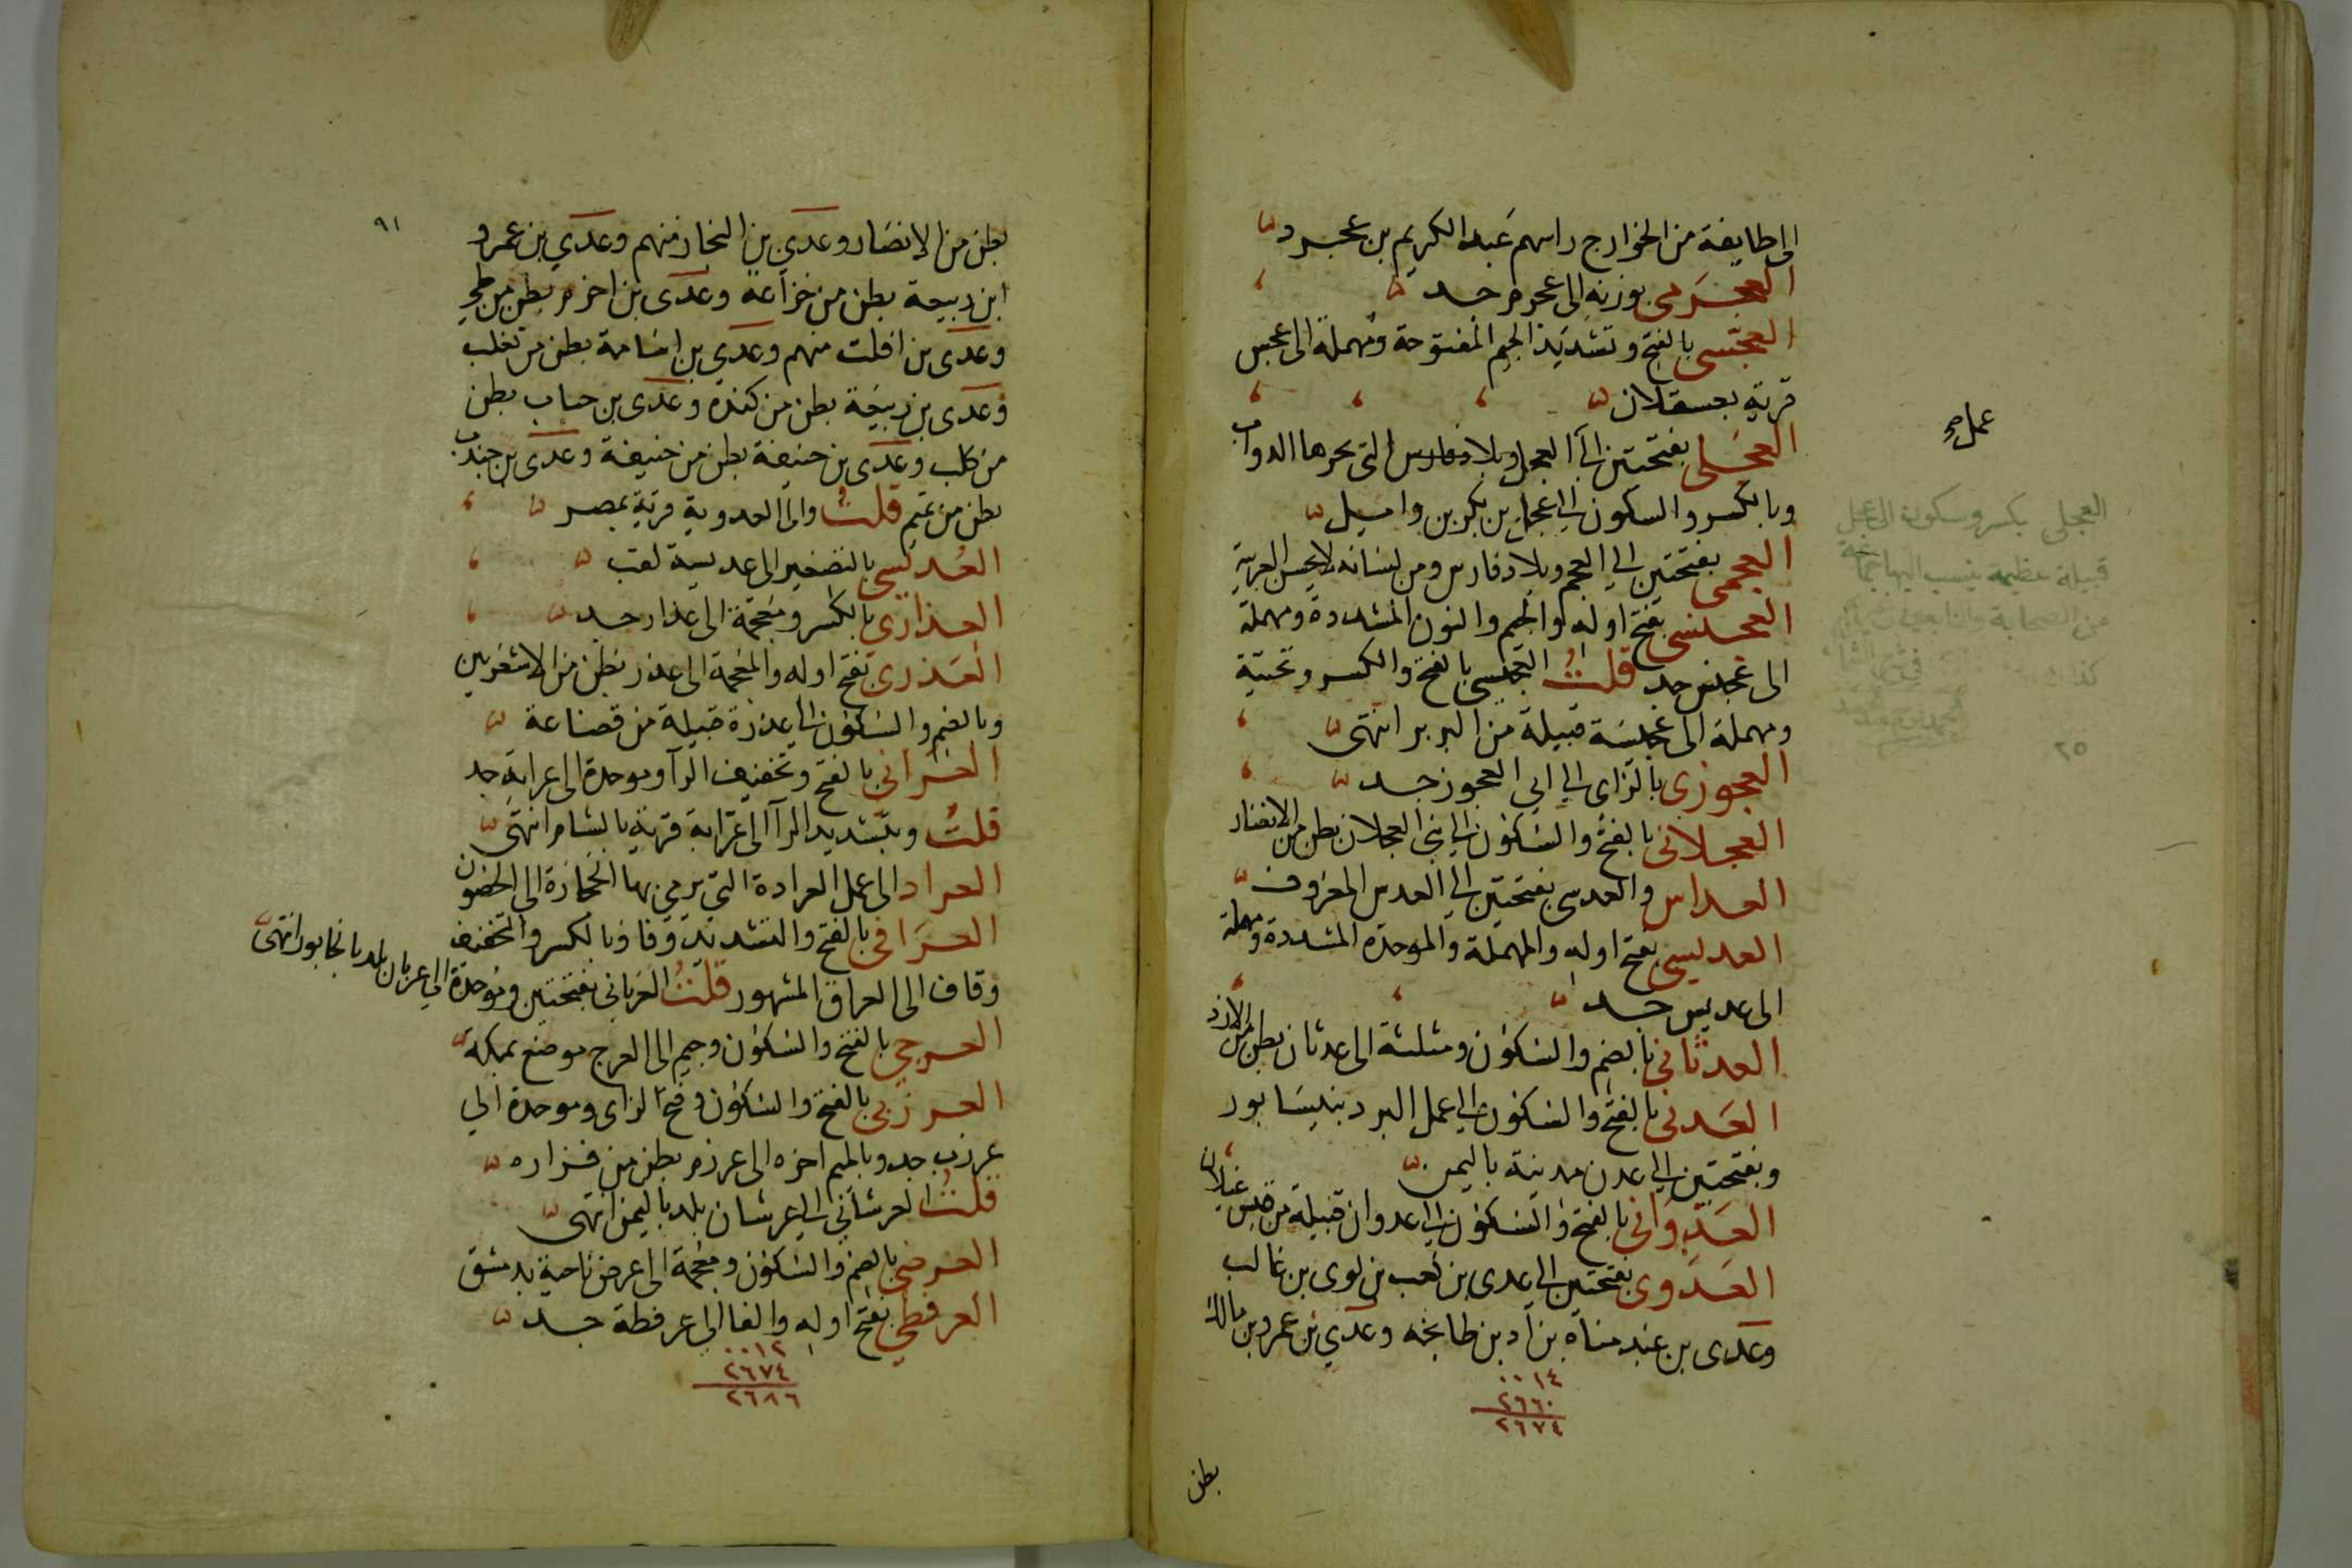 الى طايفة من الخوارج راسهم عبد الكريم بن عجرد
العجرمى بوزنه الى عجرم جد
العجسى بالفتح وتشديد الجيم المفتوحة ومهملة الى عجس
قرية بعسقلان
العجلى بفتحتين الى العجل التى يجرها الدواب
عمل صح
وبالكسر والسكون الى عجل بن بكر بن وايل
العجمى بفتحتين الى العجم وبلاد فارس ومن لسانه لا يحسن العربية
العجنسى بفتح اوله والجيم والنون المشددة ومهملة
الى عجنس جد قلت العجيسى بالفتح والكسر وتحتية
ومهملة الى عجيسة قبيلة من البربر انتهى
العجوزى بالزاى الى ابى العجوز جد
العجلانى بالفتح والسكون الى بنى العجلان بطن من الانصار
العداس والعدسى بفتحتين الى العدس المعروف
العدبسى بفتح اوله والمهملة والموحدة المشددة ومهملة
الى عدبس جد
العدثانى بالضم والسكون ومثلثة الى عدثان بطن من الازد
العدنى بالفتح والسكون الى عمل البرد بنيسابور
وبفتحتين الى عدن مدينة باليمن
العدوانى بالفتح والسكون الى عدوان قبيلة من قيس عيلان
العدوى بفتحتين الى عدى بن كعب بن لوى بن غالب
وعدى بن عبد مناة بن اد بن طابخه وعدي بن عمرو بن مالك
٠٠١٤
٢٦٦٠
٢٦٧٤
بطن
العجلى بكسر وسكون الى عجل
قبيلة عظيمة ينسب اليها جماعة
من الصحابة والتابعين
٩١
بطن من الانصار وعدي بن النجار منهم وعدي بن عمرو
ابن ربيعة بطن من خزاعة وعدى بن اخزم بطن من طي
وعدى بن افلت منهم وعدي بن اسامة بطن من تغلب
وعدى بن ربيعة بطن من كنده وعدى بن جناب بطن
من كلب وعدى بن حنيفة بطن من حنيفة وعدى بن جندب
بطن من تميم قلت والى العدوية قرية بمصر
العديسى بالتصغير الى عديسة لقب
العذارى بالكسر ومعجمة الى عذار جد
العذرى بفتح اوله والمعجمة الى عذر بطن من الاشعريين
وبالضم والسكون الى عذرة قبيلة من قضاعة
العرابى بالفتح وتخفيف الرآ وموحدة الى عرابة جد
قلت وبتشديد الرآ الى عرابة قرية بالشام انتهى
العراد الى عمل العرادة التي يرمى بها الحجارة الى الحصون
العراقى بالفتح والتشديد وقاف وبالكسر والتخفيف
وقاف الى العراق المشهور قلت العربانى بفتحتين وموحدة الي عربان بلد بالخابور انتهى
العرجي بالفتح والسكون وجيم الى العرج موضع بمكة
العرزبى بالفتح والسكون وفتح الزاى وموحدة الي
عرزب جد وبالميم اخره الى عرزم بطن من فزاره
قلت العرشانى الى عرشان بلد باليمن انتهى
العرضى بالضم والسكون ومعجمة الى عرض ناحية بدمشق
العرفطي بفتح اوله والفا الى عرفطة جد
٠٠١٢
٢٦٧٤
٢٦٨٦